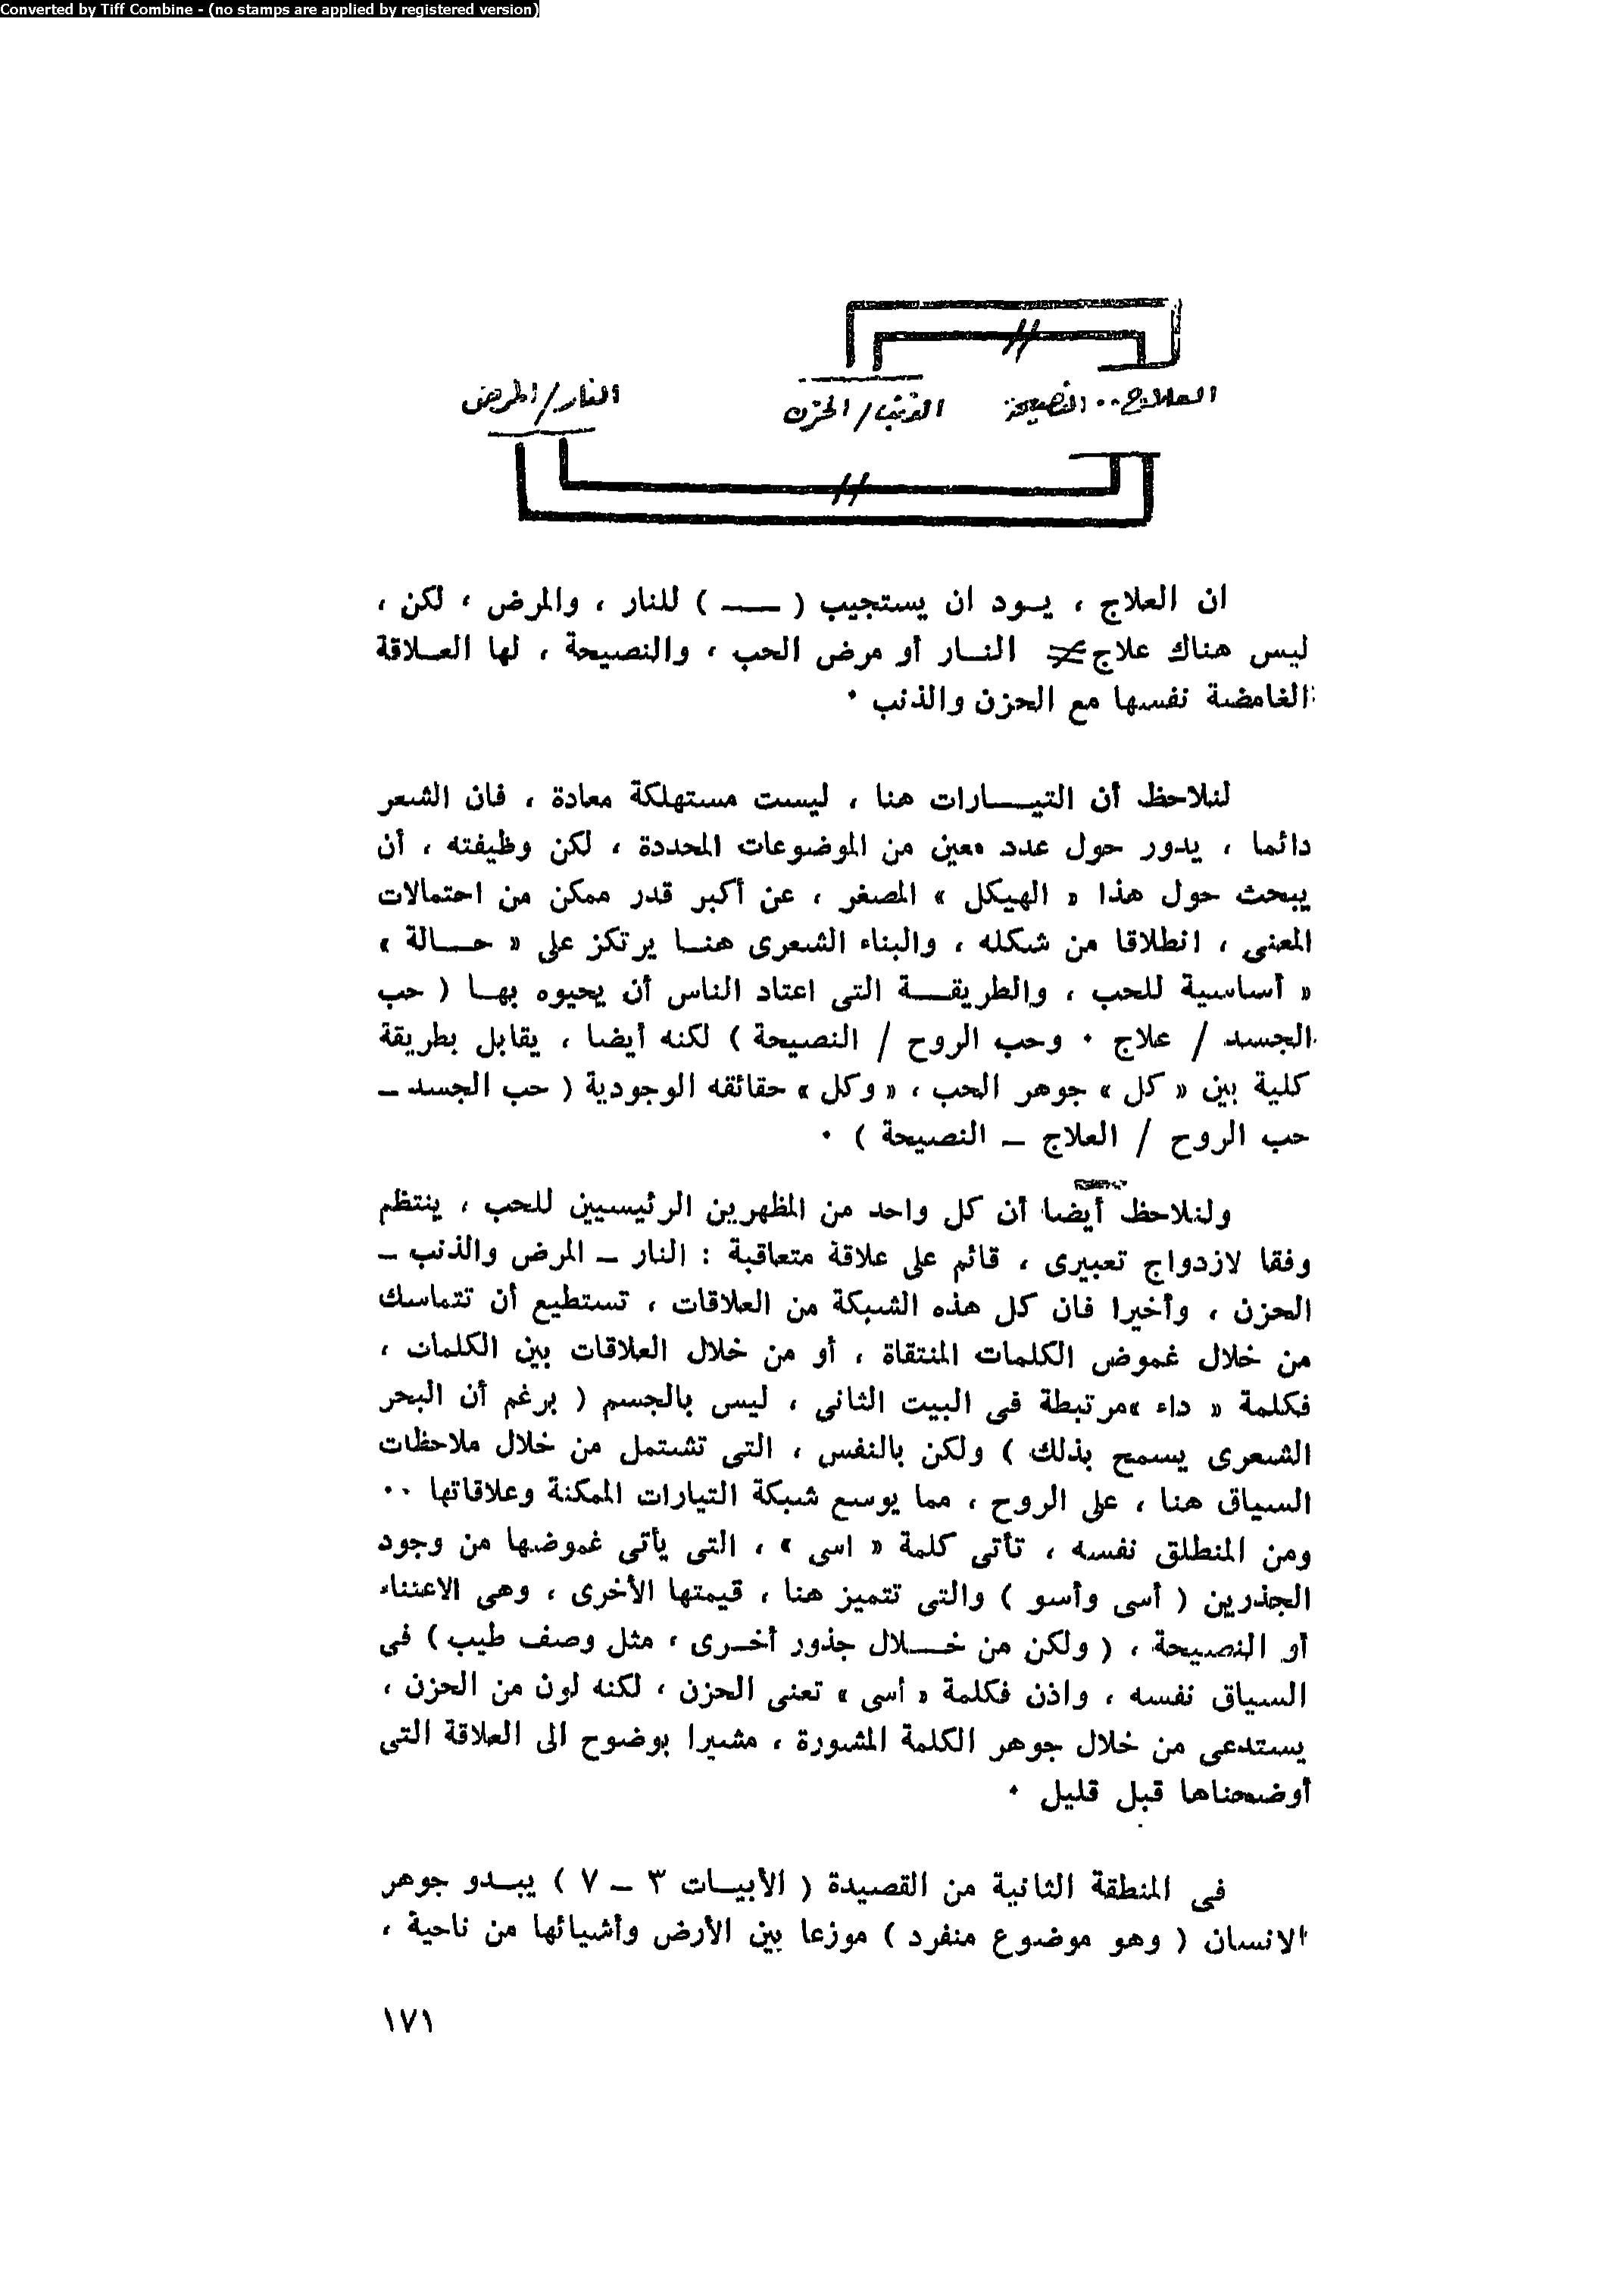 Converted by Tiff Combine - (no stamps are applied by registered version)
العلاج . . النصيحة الذنب / الحزن النار / المرض
ان العلاج ، يـود ان يستجيب ( ــــ ) للنار ، والمرض ، لكن ،
ليس هناك علاج ≠ النـار أو مرض الحب ، والنصيحة ، لها العـلاقة
الغامضة نفسها مع الحزن والذنب ٠
لنلاحظ أن التيـــارات هنا ، ليست مستهلكة معادة ، فان الشعر
دائما ، يدور حول عدد معين من الموضوعات المحددة ، لكن وظيفته ، أن
يبحث حول هذا « الهيكل » المصغر ، عن أكبر قدر ممكن من احتمالات
المعنى ، انطلاقا من شكله ، والبناء الشعرى هنـا يرتكز على « حـــالة »
« أساسية للحب ، والطريقـــة التى اعتاد الناس أن يحيوه بهـا ( حب
الجسد / علاج ٠ وحب الروح / النصيحة ) لكنه أيضا ، يقابل بطريقة
كلية بين « كل » جوهر الحب ، « وكل » حقائقه الوجودية ( حب الجسد ــ
حب الروح / العلاج ــ النصيحة ) ٠
ولنلاحظ أيضا أن كل واحد من المظهرين الرئيسيين للحب ، ينتظم
وفقا لازدواج تعبيرى ، قائم على علاقة متعاقبة : النار ــ المرض والذنب ــ
الحزن ، وأخيرا فان كل هذه الشبكة من العلاقات ، تستطيع أن تتماسك
من خلال غموض الكلمات المنتقاة ، أو من خلال العلاقات بين الكلمات ،
فكلمة « داء »مرتبطة فى البيت الثانى ، ليس بالجسم ( برغم أن البحر
الشعرى يسمح بذلك ) ولكن بالنفس ، التى تشتمل من خلال ملاحظات
السياق هنا ، على الروح ، مما يوسع شبكة التيارات الممكنة وعلاقاتها ٠٠
ومن المنطلق نفسه ، تأتى كلمة « اسى » ، التى يأتى غموضها من وجود
الجذرين ( أسى وأسو ) والتى تتميز هنا ، قيمتها الأخرى ، وهى الاعتناء
أو النصيحة ، ( ولكن من خـــلال جذور أخـرى ، مثل وصف طيب ) فى
السياق نفسه ، واذن فكلمة « أسى » تعنى الحزن ، لكنه لون من الحزن ،
يستدعى من خلال جوهر الكلمة المشورة ، مشيرا بوضوح الى العلاقة التى
أوضحناها قبل قليل ٠
فى المنطقة الثانية من القصيدة ( الأبيـات ٣ ــ ٧ ) يبـدو جوهر
الانسان ( وهو موضوع منفرد ) موزعا بين الأرض وأشيائها من ناحية ،
١٧١